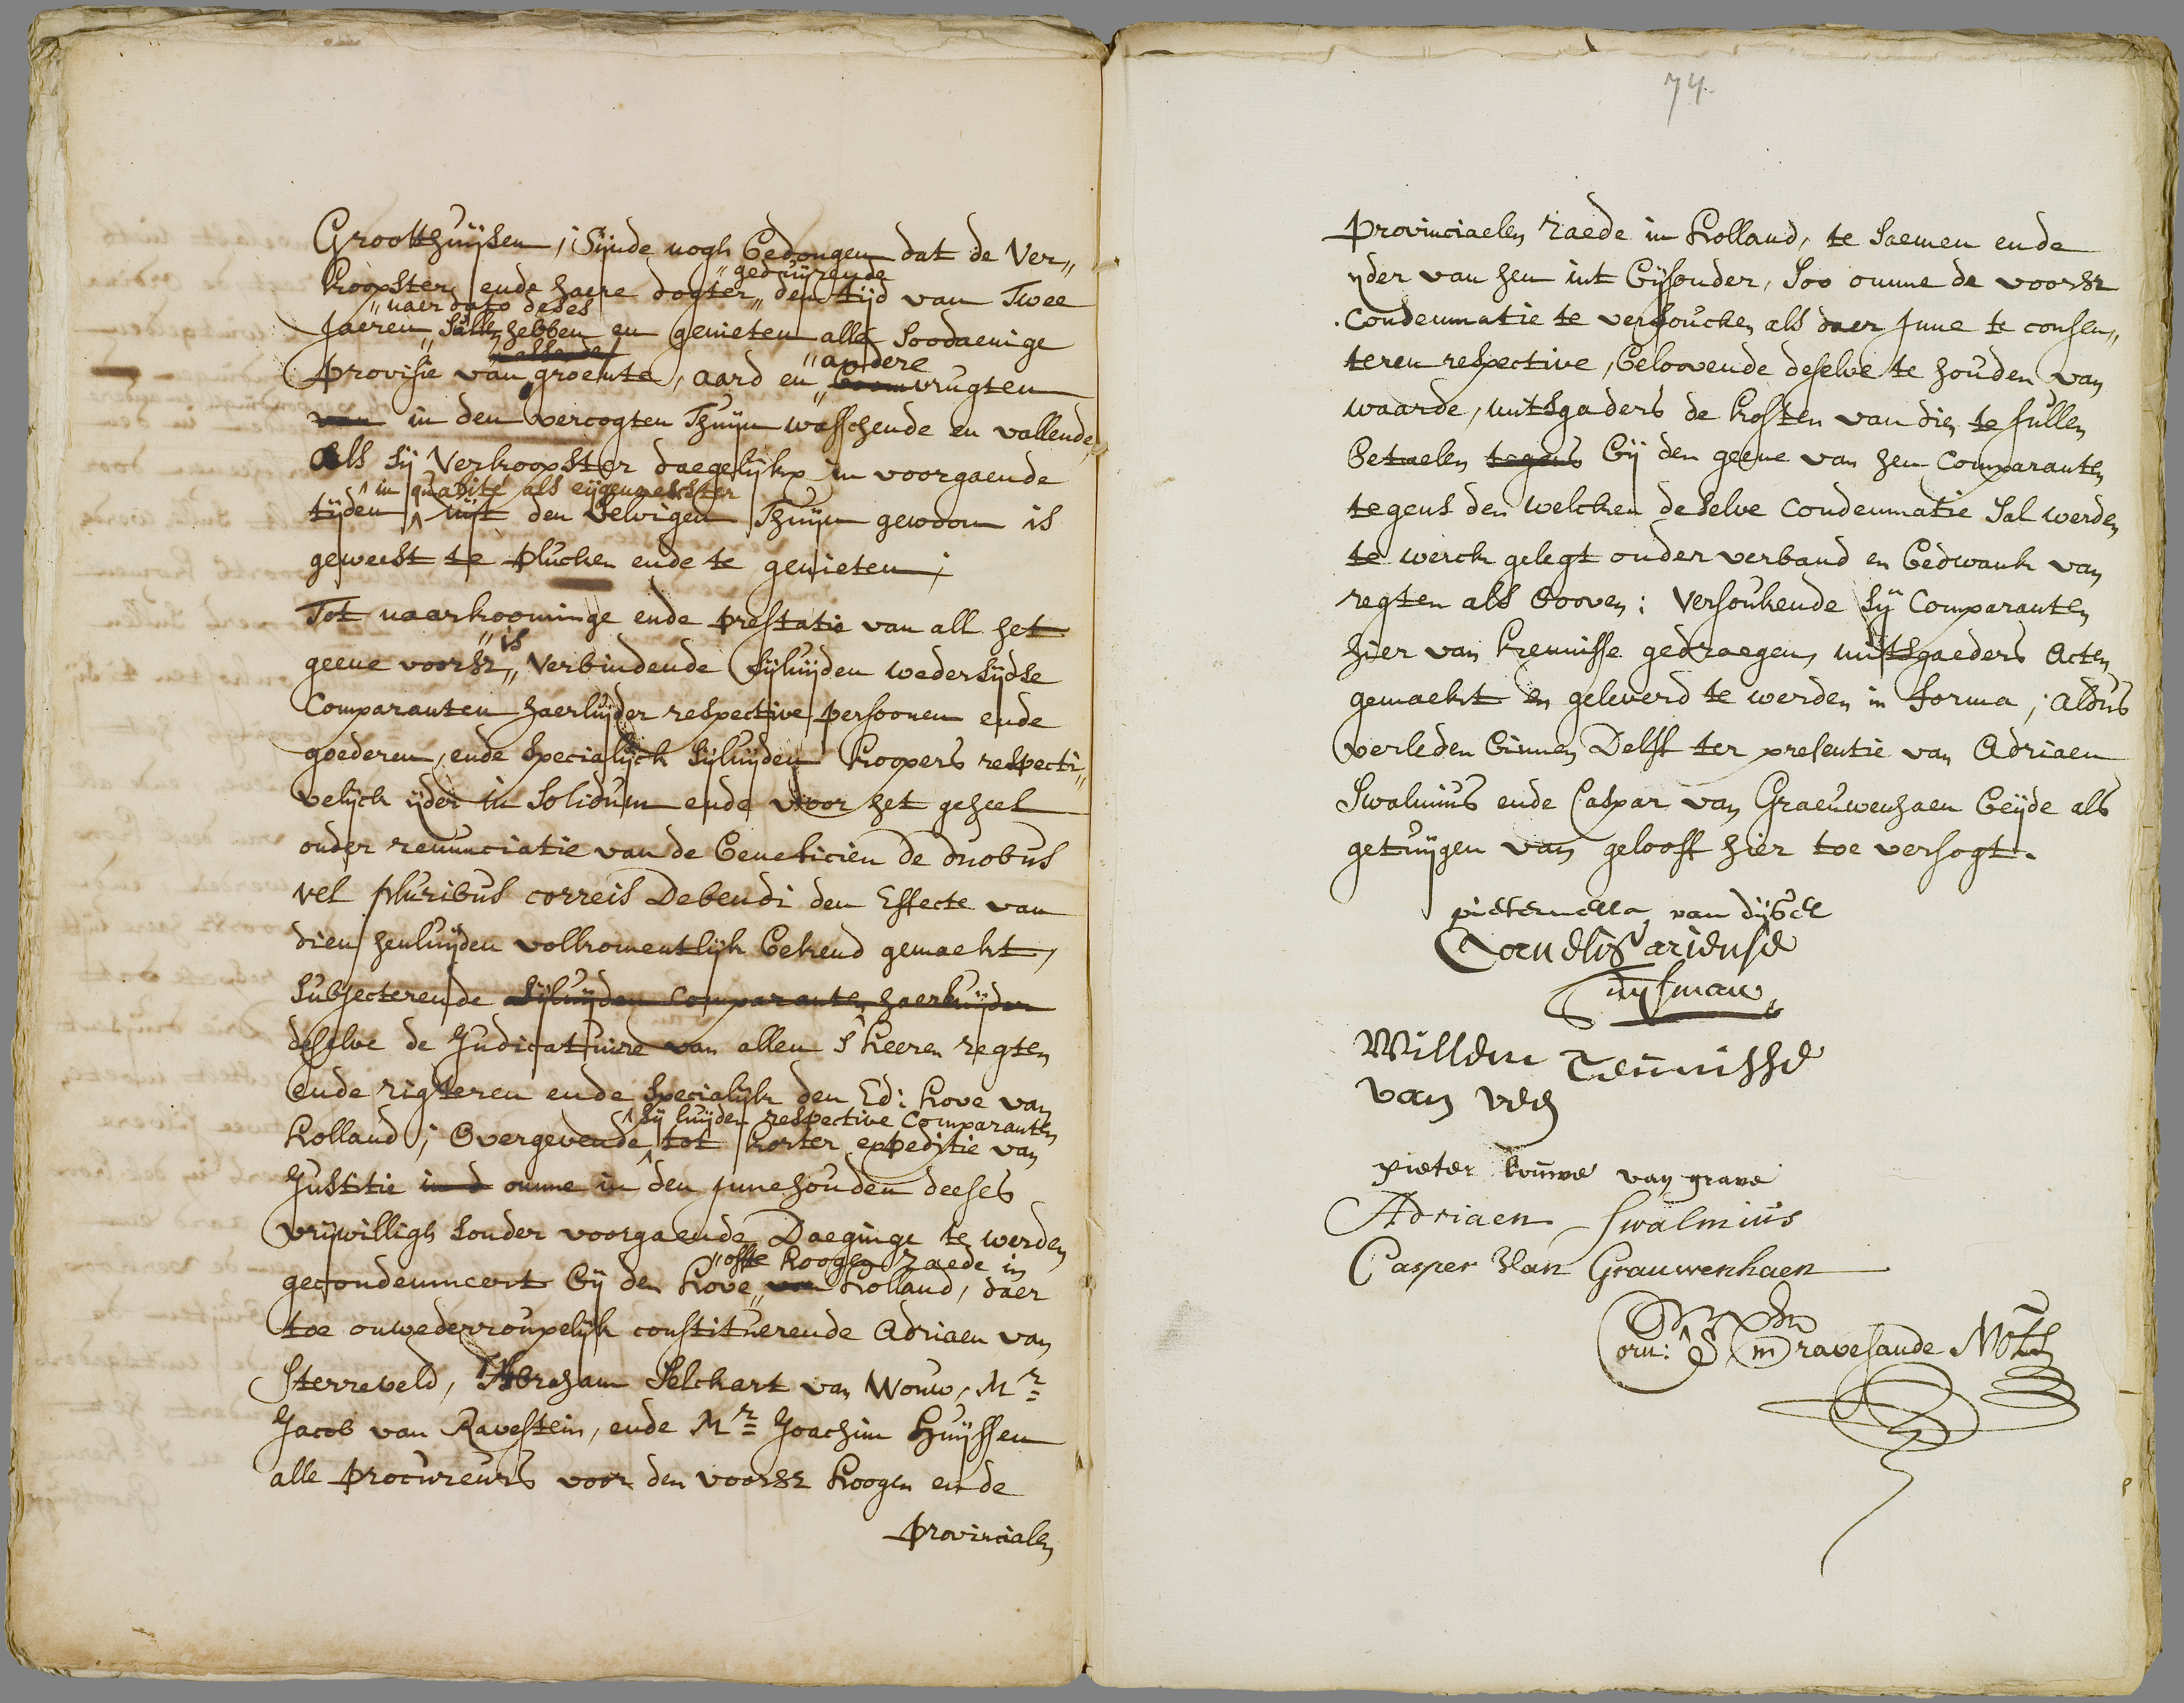 Grootthuijsen, Sijnde nogh bedongen dat de Ver„
„geduijrende
koopster ende haere dogter „ den tijd van Twee
„naer dato deses
Jaeren „ Sall hebben en genieten alle Soodaenige
„andere
provisie van groente, aard en „ boomvrugten
van in den vercogten Thuijn wasschende en vallende,
Als sij Verkoopster daegelijkx in voorgaende
^ in qualité als eijgenaerster
tijden ^ uijt den Selvigen Thuijn gewoon is
geweest te plucken ende te genieten;
Tot naarkoominge ende prestatie van all het
„is
geene voorsz „ Verbindende Sijluijden wedersijdse
Comparanten haerluijder respective persoonen ende
goederen, ende Specialijck Sijluijden koopers respecti„
velijck ijder in Solidum ende voor het geheel
onder renunciatie van de beneficien de duobus
vel pluribus correis Debendi den Effecte van
dien henluijden volkomentlijk bekend gemaekt,
Subjecterende Sijluijden Comparanten haerluijden
deselve de Judicatuire van allen S'heeren regten
ende rigteren ende Specialijk den Ed: hove van
^ Sij luijden respective Comparanten
holland; Overgevende ^ tot korter expeditie van
Justitie in d omme in den Innehouden deeses
vrijwilligh Sonder voorgaende Daeginge te werden
„ofte hoogen Raede in
gecondemneert bij den hove „ van holland, daer
toe onwederroupelijk constituerende Adriaen van
Sterreveld, Abraham Selckart van Wouw, Mr
Jacob van Ravestein, ende Mr Joachim Huijssen
alle procureurs voor den voorsz hoogen ende
provincialen
74.
provinciaelen Raede in holland, te saemen ende
ijder van hen int bijsonder, Soo omme de voorsz
Condemnatie te versoucken als daer Inne te consen„
teren respective, beloovende deselve te houden van
waarde, mitsgaders de kosten van dien te sullen
betaelen tegens bij den geene van hen Comparanten
tegens den welcken deselve Condemnatie Sal werden
te werck gelegt onder verband en bedwank van
regten als boven: Versoukende Sij Comparanten
hier van kennisse gedraegen, mitsgaeders Acten
gemaekt en geleverd te werden in forma; Aldus
verleden binnen Delft ter presentie van Adriaen
Swalmius ende Caspar van Graeuwenhaen beijde als
getuijgen van gelooff hier toe versogt.
pieternella van dijsel
Cornelis ariense
Suijsman
Willem Teunisse
van ved
pieter louwe van grave
Adriaen Swalmius
Casper Van Grauwenhaen
Corn: S' Gravesande Nots